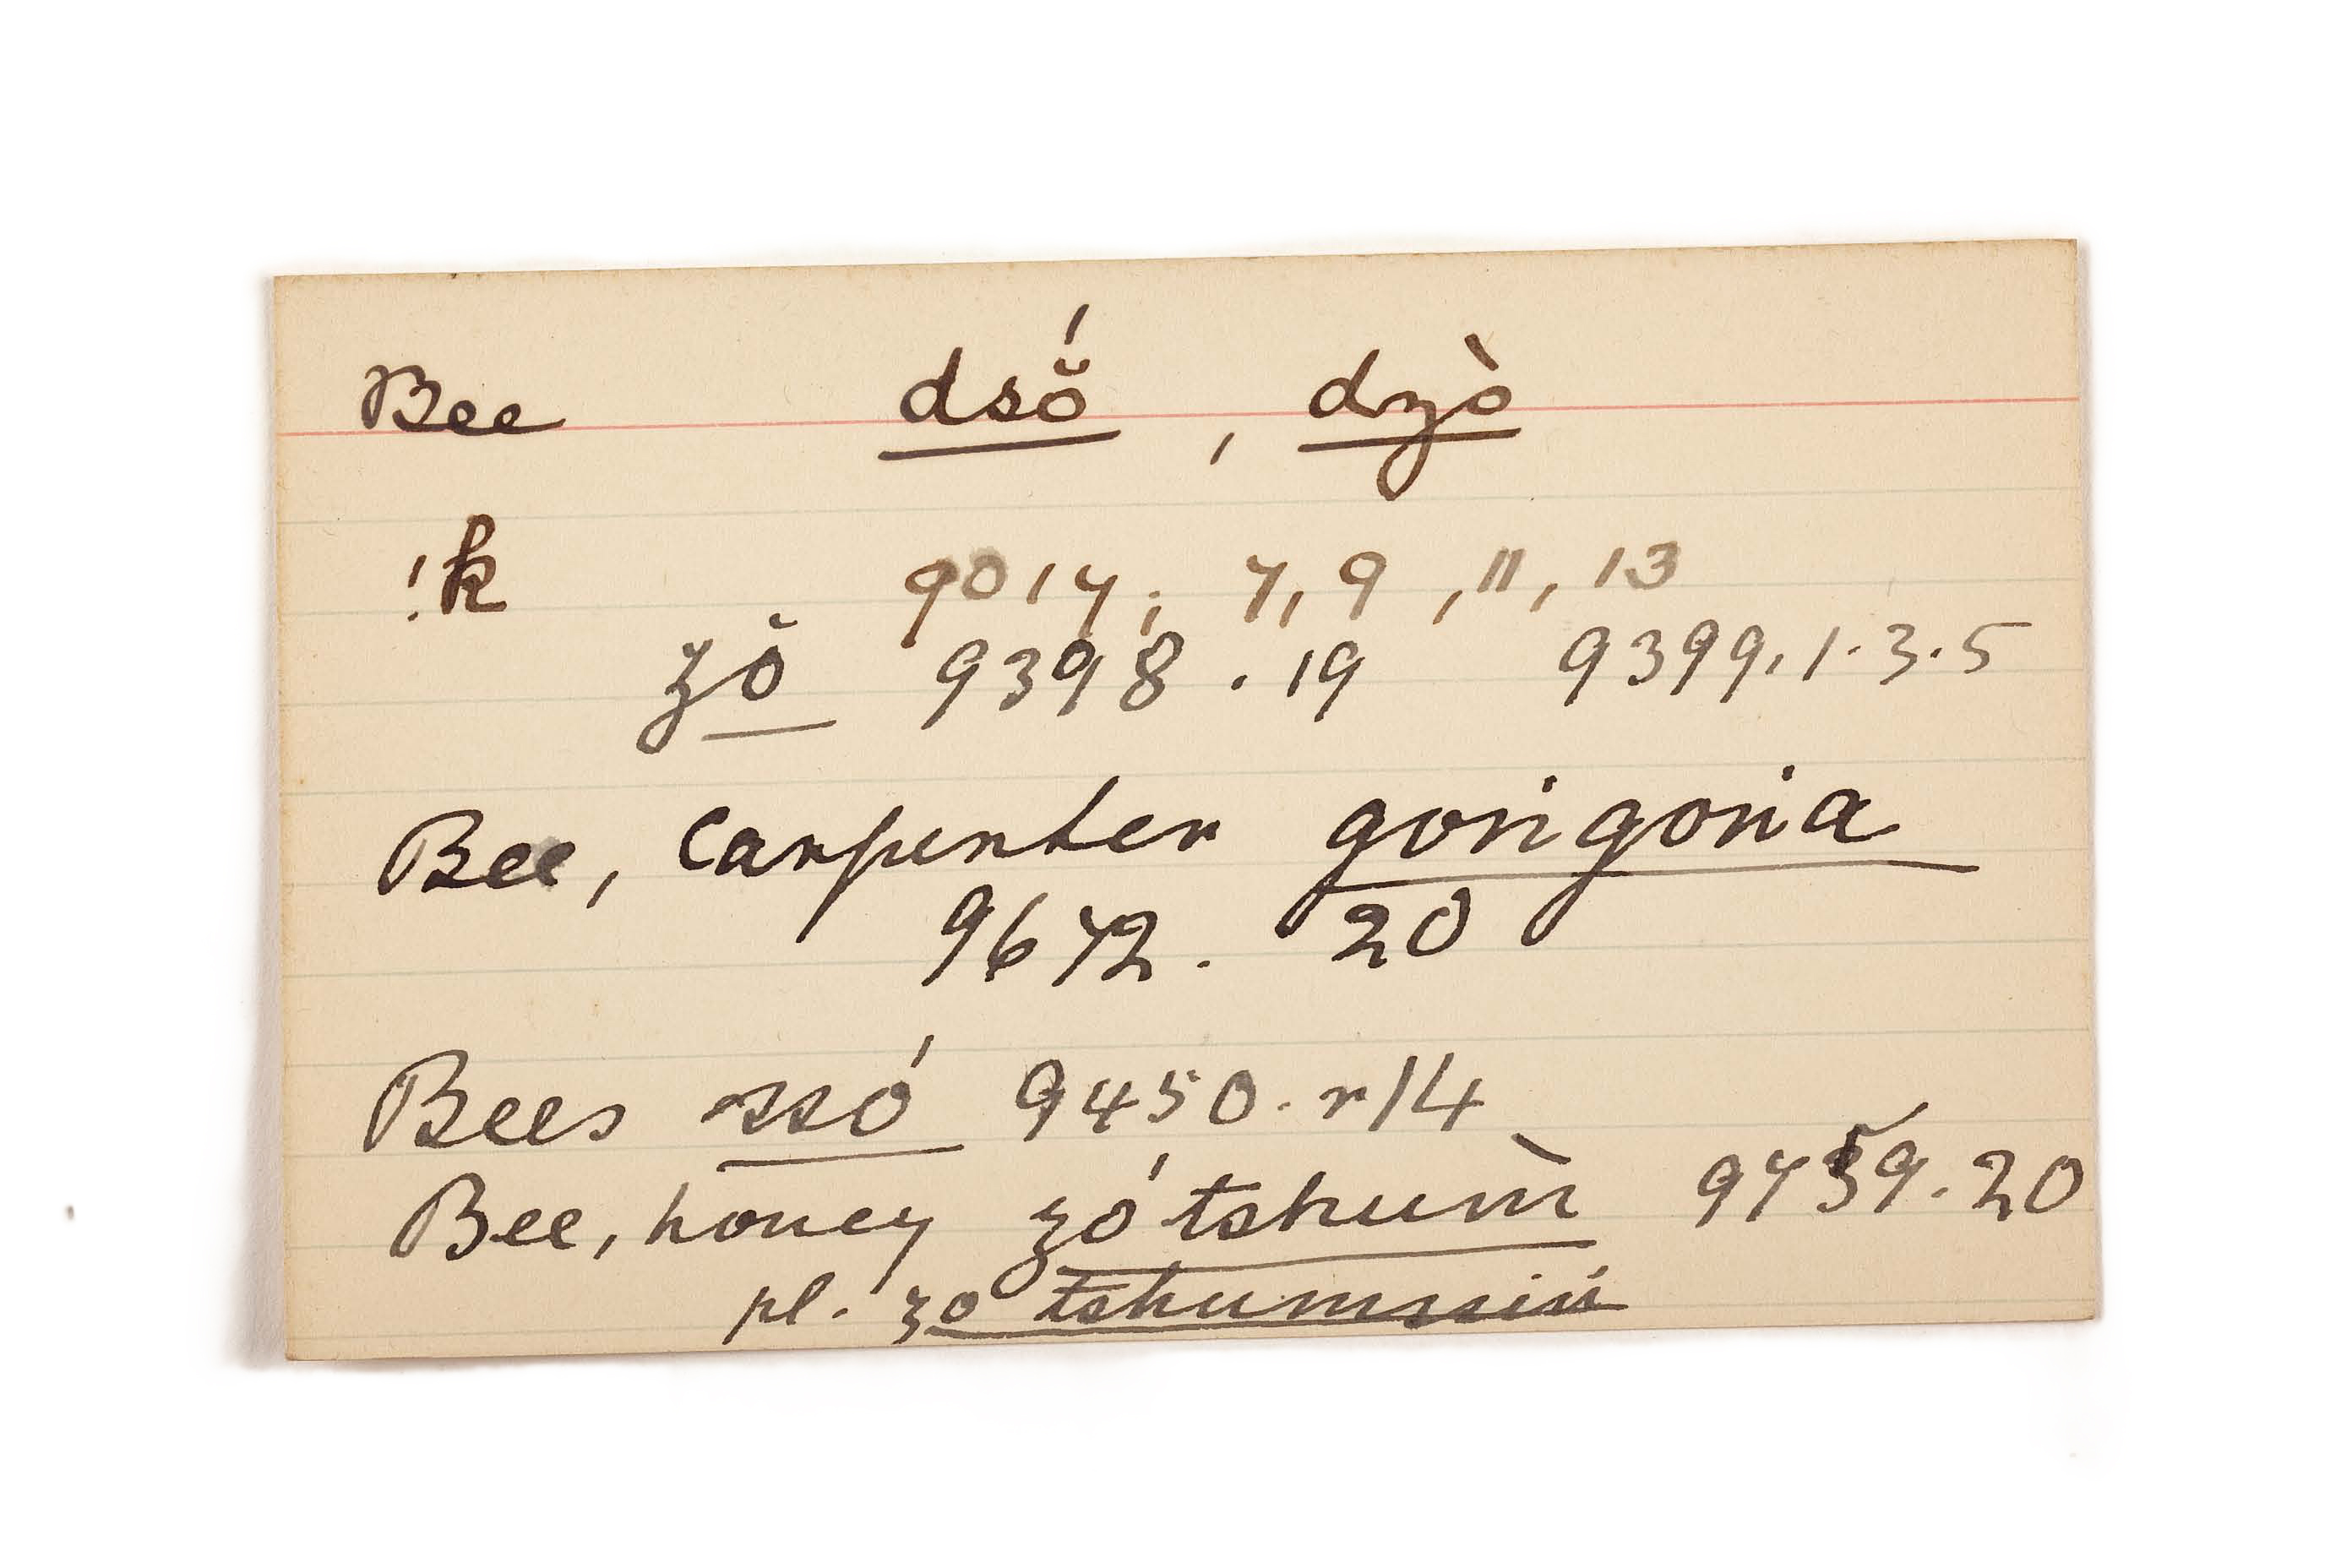 Bee dsŏ́, dzò
!k 9017; 7, 9, 11, 13
zŏ 9398.19 9399.1.3.5
Bee, Carpenter goṅgoṅa
9672. 20
Bees ssó 9450.r/4
Bee, honey zó tshum̀ 9759.20
pl. zo tshumssiń